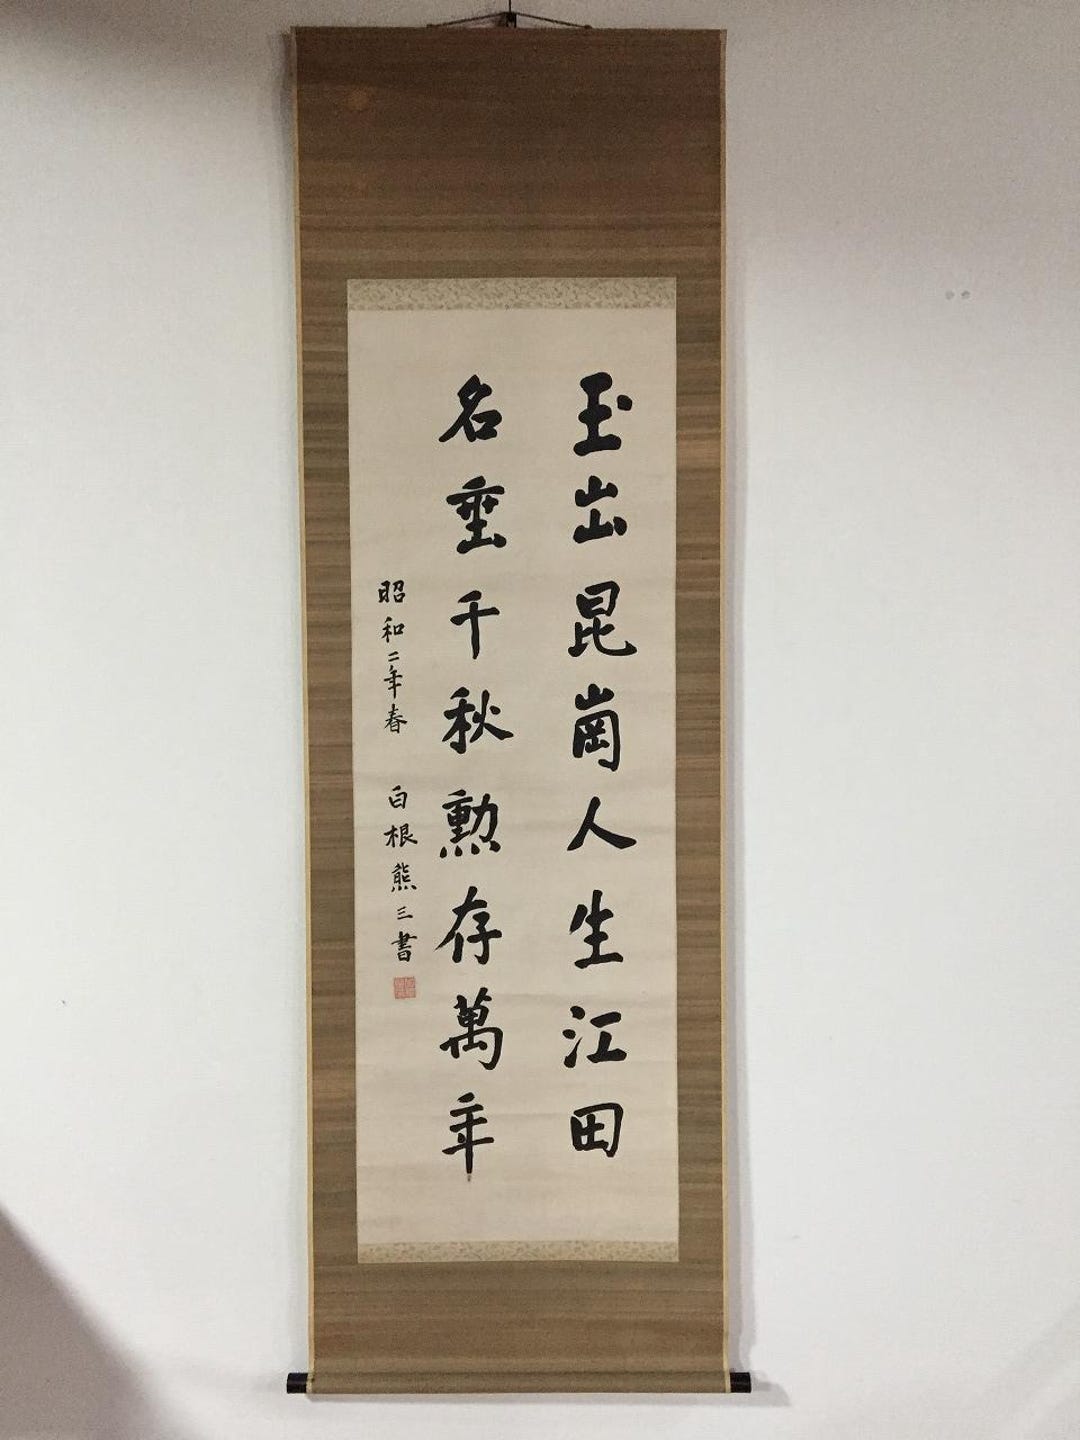 玉出昆崗人生江田
名垂千秋勲存萬年
昭和二年春 白根熊三書